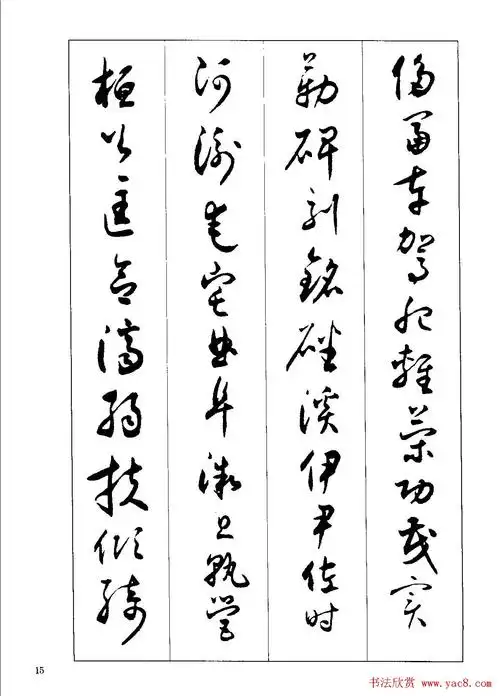 侈富車駕肥輕策功茂實
勒碑刻銘磻溪伊尹佐時
阿衡奄宅曲阜微旦孰營
桓公匡合濟弱扶傾綺
15
书法欣赏 www.yac8.com